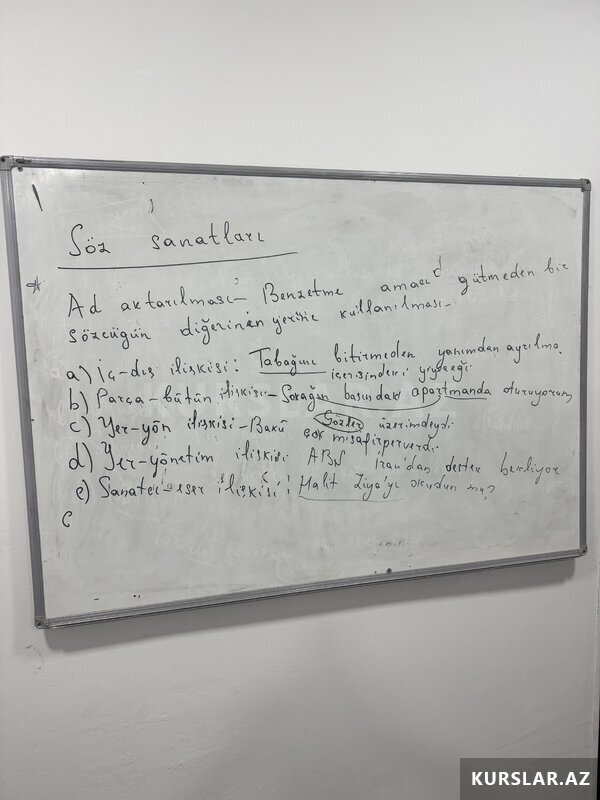 Söz sanatları
Ad aktarılması - Benzetme amacı gütmeden bir
sözcüğün diğerinin yerine kullanılması.
a) İç-dış ilişkisi: Tabağını bitirmeden yanımdan ayrılma.
içerisindeki yiyeceği
b) Parça-bütün ilişkisi - Sokağın başındaki apartmanda oturuyorum
Gözler üzerimdeydi.
c) Yer-yön ilişkisi - Bakü çok misafirperverdi.
d) Yer-yönetim ilişkisi ABD İran'dan destek bekliyor
e) Sanatçı-eser ilişkisi: Halit Ziya'yı okudun mu?
KURSLAR.AZ